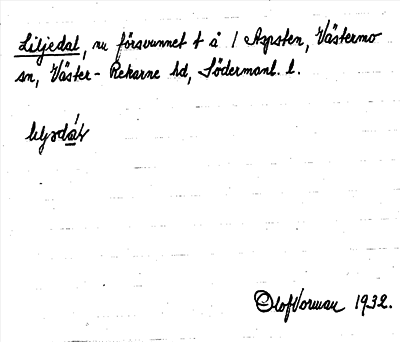 Liljedal, nu försvunnet t å 1 Aspsten, Västermo
sn, Väster-Rekarne hd, Södermanl. l.
Olof Vorman 1932.